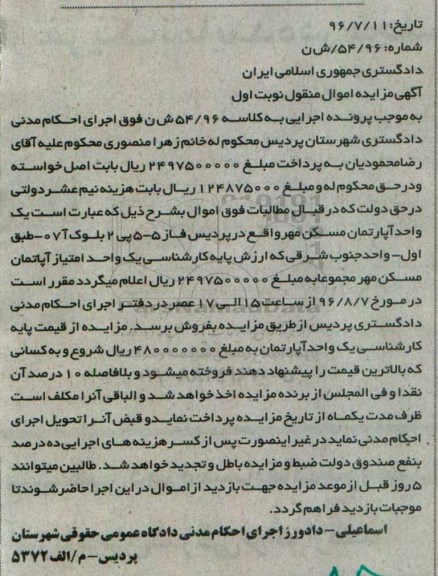 تاریخ: ۹۶/۷/۱۱
شماره: ۵۴/۹۶/ش ن
دادگستری جمهوری اسلامی ایران
آگهی مزایده اموال منقول نوبت اول
به موجب پرونده اجرایی به کلاسه ۵۴/۹۶ ش ن فوق اجرای احکام مدنی
دادگستری شهرستان پردیس محکوم له خانم زهرا منصوری محکوم علیه آقای
رضا محمودیان به پرداخت مبلغ ۲۴۹۷۵۰۰۰۰۰ ریال بابت اصل خواسته
و در حق محکوم له و مبلغ ۱۲۴۸۷۵۰۰۰ ریال بابت هزینه نیم عشر دولتی
در حق دولت که در قبال مطالبات فوق اموال بشرح ذیل که عبارت است یک
واحد آپارتمان مسکن مهر واقع در پردیس فاز ۵-۵ پی ۲ بلوک ۰۷آ-طبق
اول- واحد جنوب شرقی که ارزش پایه کارشناسی یک واحد امتیاز آپاتمان
مسکن مهر مجموعا به مبلغ ۲۴۹۷۵۰۰۰۰۰ ریال اعلام میگردد مقرر است
در مورخ ۹۶/۸/۷ از ساعت ۱۵ الی ۱۷ عصر در دفتر اجرای احکام مدنی
دادگستری پردیس از طریق مزایده بفروش برسد. مزایده از قیمت پایه
کارشناسی یک واحد آپارتمان به مبلغ ۴۸۰۰۰۰۰۰۰ ریال شروع و به کسانی
که بالاترین قیمت را پیشنهاد دهند فروخته میشود و بلافاصله ۱۰ درصد آن
نقدا و فی المجلس از برنده مزایده اخذ خواهد شد و الباقی آنرا مکلف است
ظرف مدت یکماه از تاریخ مزایده پرداخت نماید و قبض آنرا تحویل اجرای
احکام مدنی نماید در غیر اینصورت پس از کسر هزینه های اجرایی ده درصد
بنفع صندوق دولت ضبط و مزایده باطل و تجدید خواهد شد. طالبین میتوانند
۵ روز قبل از موعد مزایده جهت بازدید از اموال در این اجرا حاضر شوند تا
موجبات بازدید فراهم گردد.
اسماعیلی- دادورز اجرای احکام مدنی دادگاه عمومی حقوقی شهرستان
پردیس-م/الف ۵۳۷۲